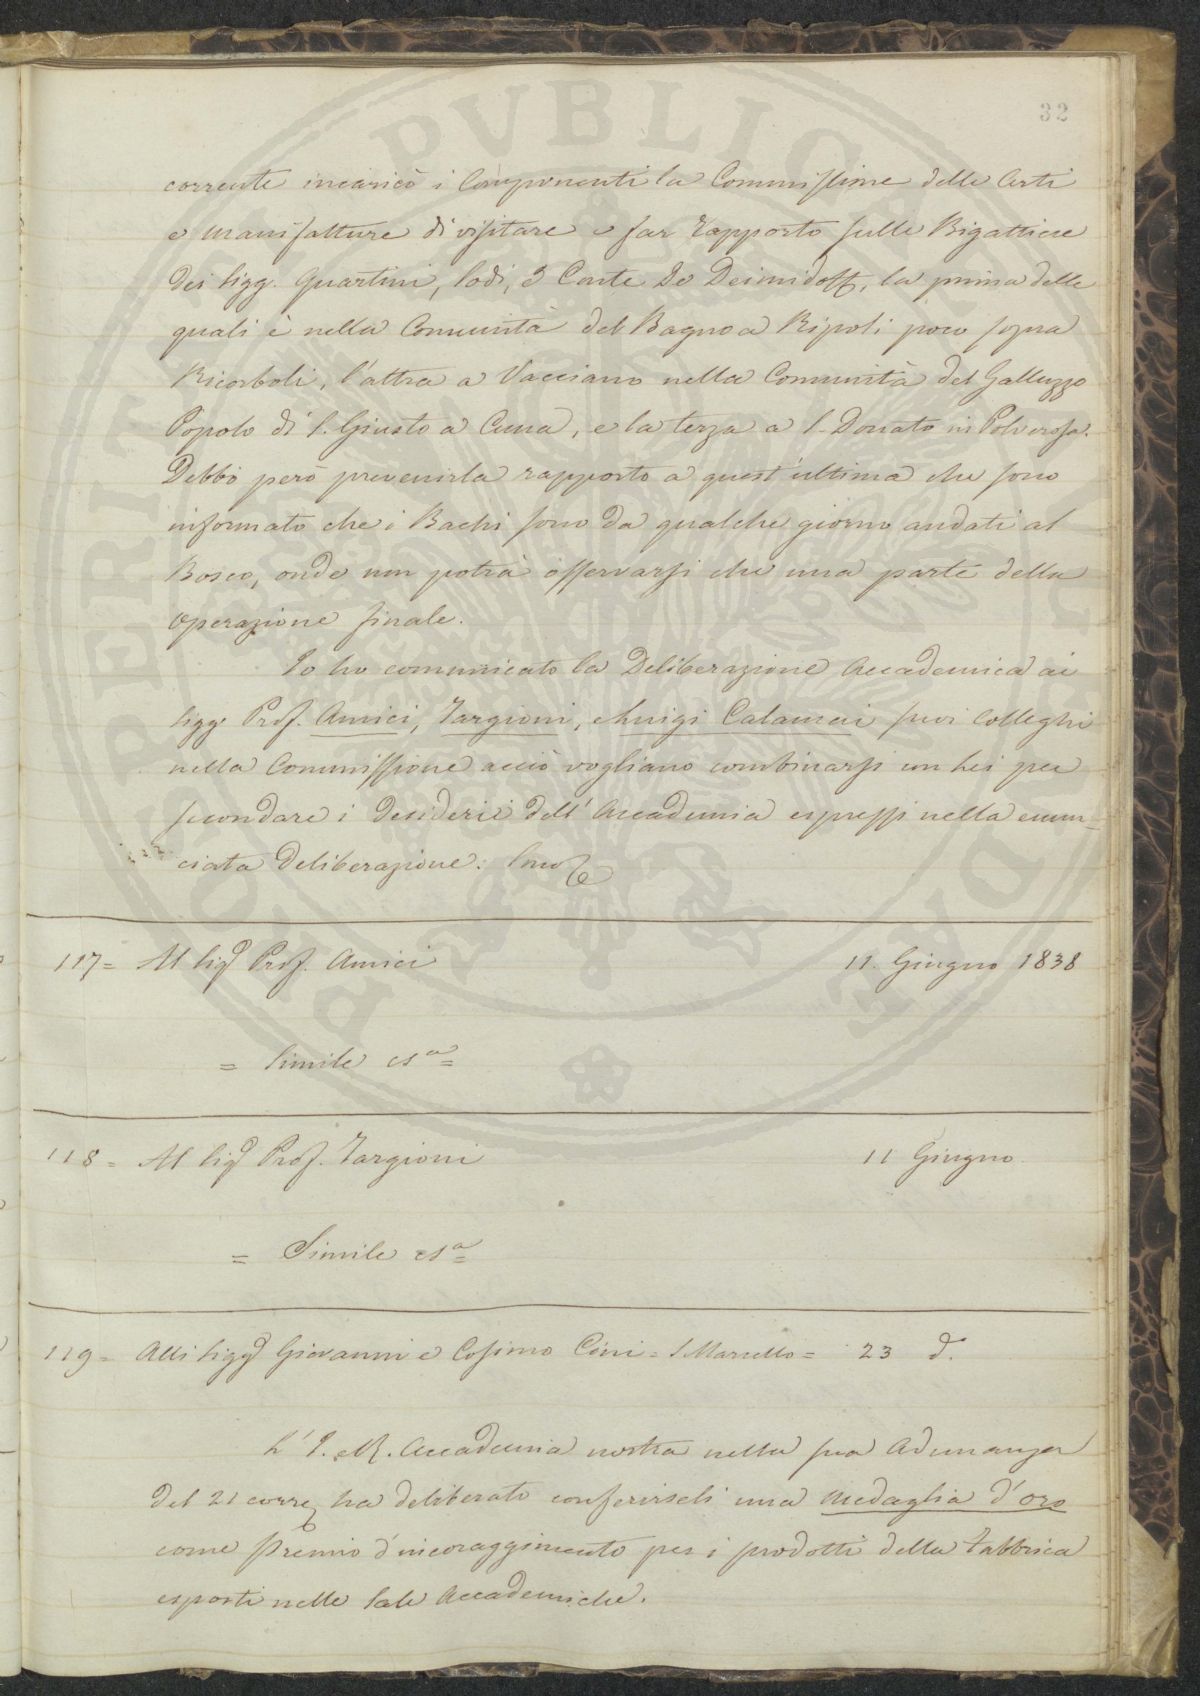 32
corrente incaricò i Componenti la Commissione delle Arti
e Manifatture di visitare e far rapporto sulle Bigattiere
dei Sigg. Quartini, Lodi, e Conte De Demidoff, la prima delle
quali è nella Comunità del Bagno a Ripoli poco sopra
Ricorboli, l'altra a Vacciano nella Comunità del Galluzzo
Popolo di S. Giusto a Ema, e la terza a S. Donato in Polverosa.
Debbo però prevenirla rapporto a quest'ultima che sono
informato che i Bachi sono da qualche giorno andati al
Bosco, onde non potrà osservarsi che una parte della
operazione finale.
Io ho comunicato la Deliberazione Accademica ai
Sigg. Prof. Amici, Targioni, e Luigi Calamai suoi Colleghi
nella Commissione acciò vogliano combinarsi con Lei per
secondare i desiderii dell'Accademia espressi nella enun-
ciata Deliberazione: Sono
117= Al Sigr Prof. Amici 11. Giugno 1838
= Simile csa=
118= Al Sigr Prof. Targioni 11 Giugno
= Simile csa=
119= Alli Siggri Giovanni e Cosimo Cini= S. Marcello= 23 d.
L'I. e R. Accademia nostra nella sua Adunanza
del 21 corre ha deliberato conferirseli una Medaglia d'oro
come premio d'incoraggimento per i prodotti della Fabbrica
esposti nelle Sale Accademiche.
PVBLICAE
PROSPERITATI